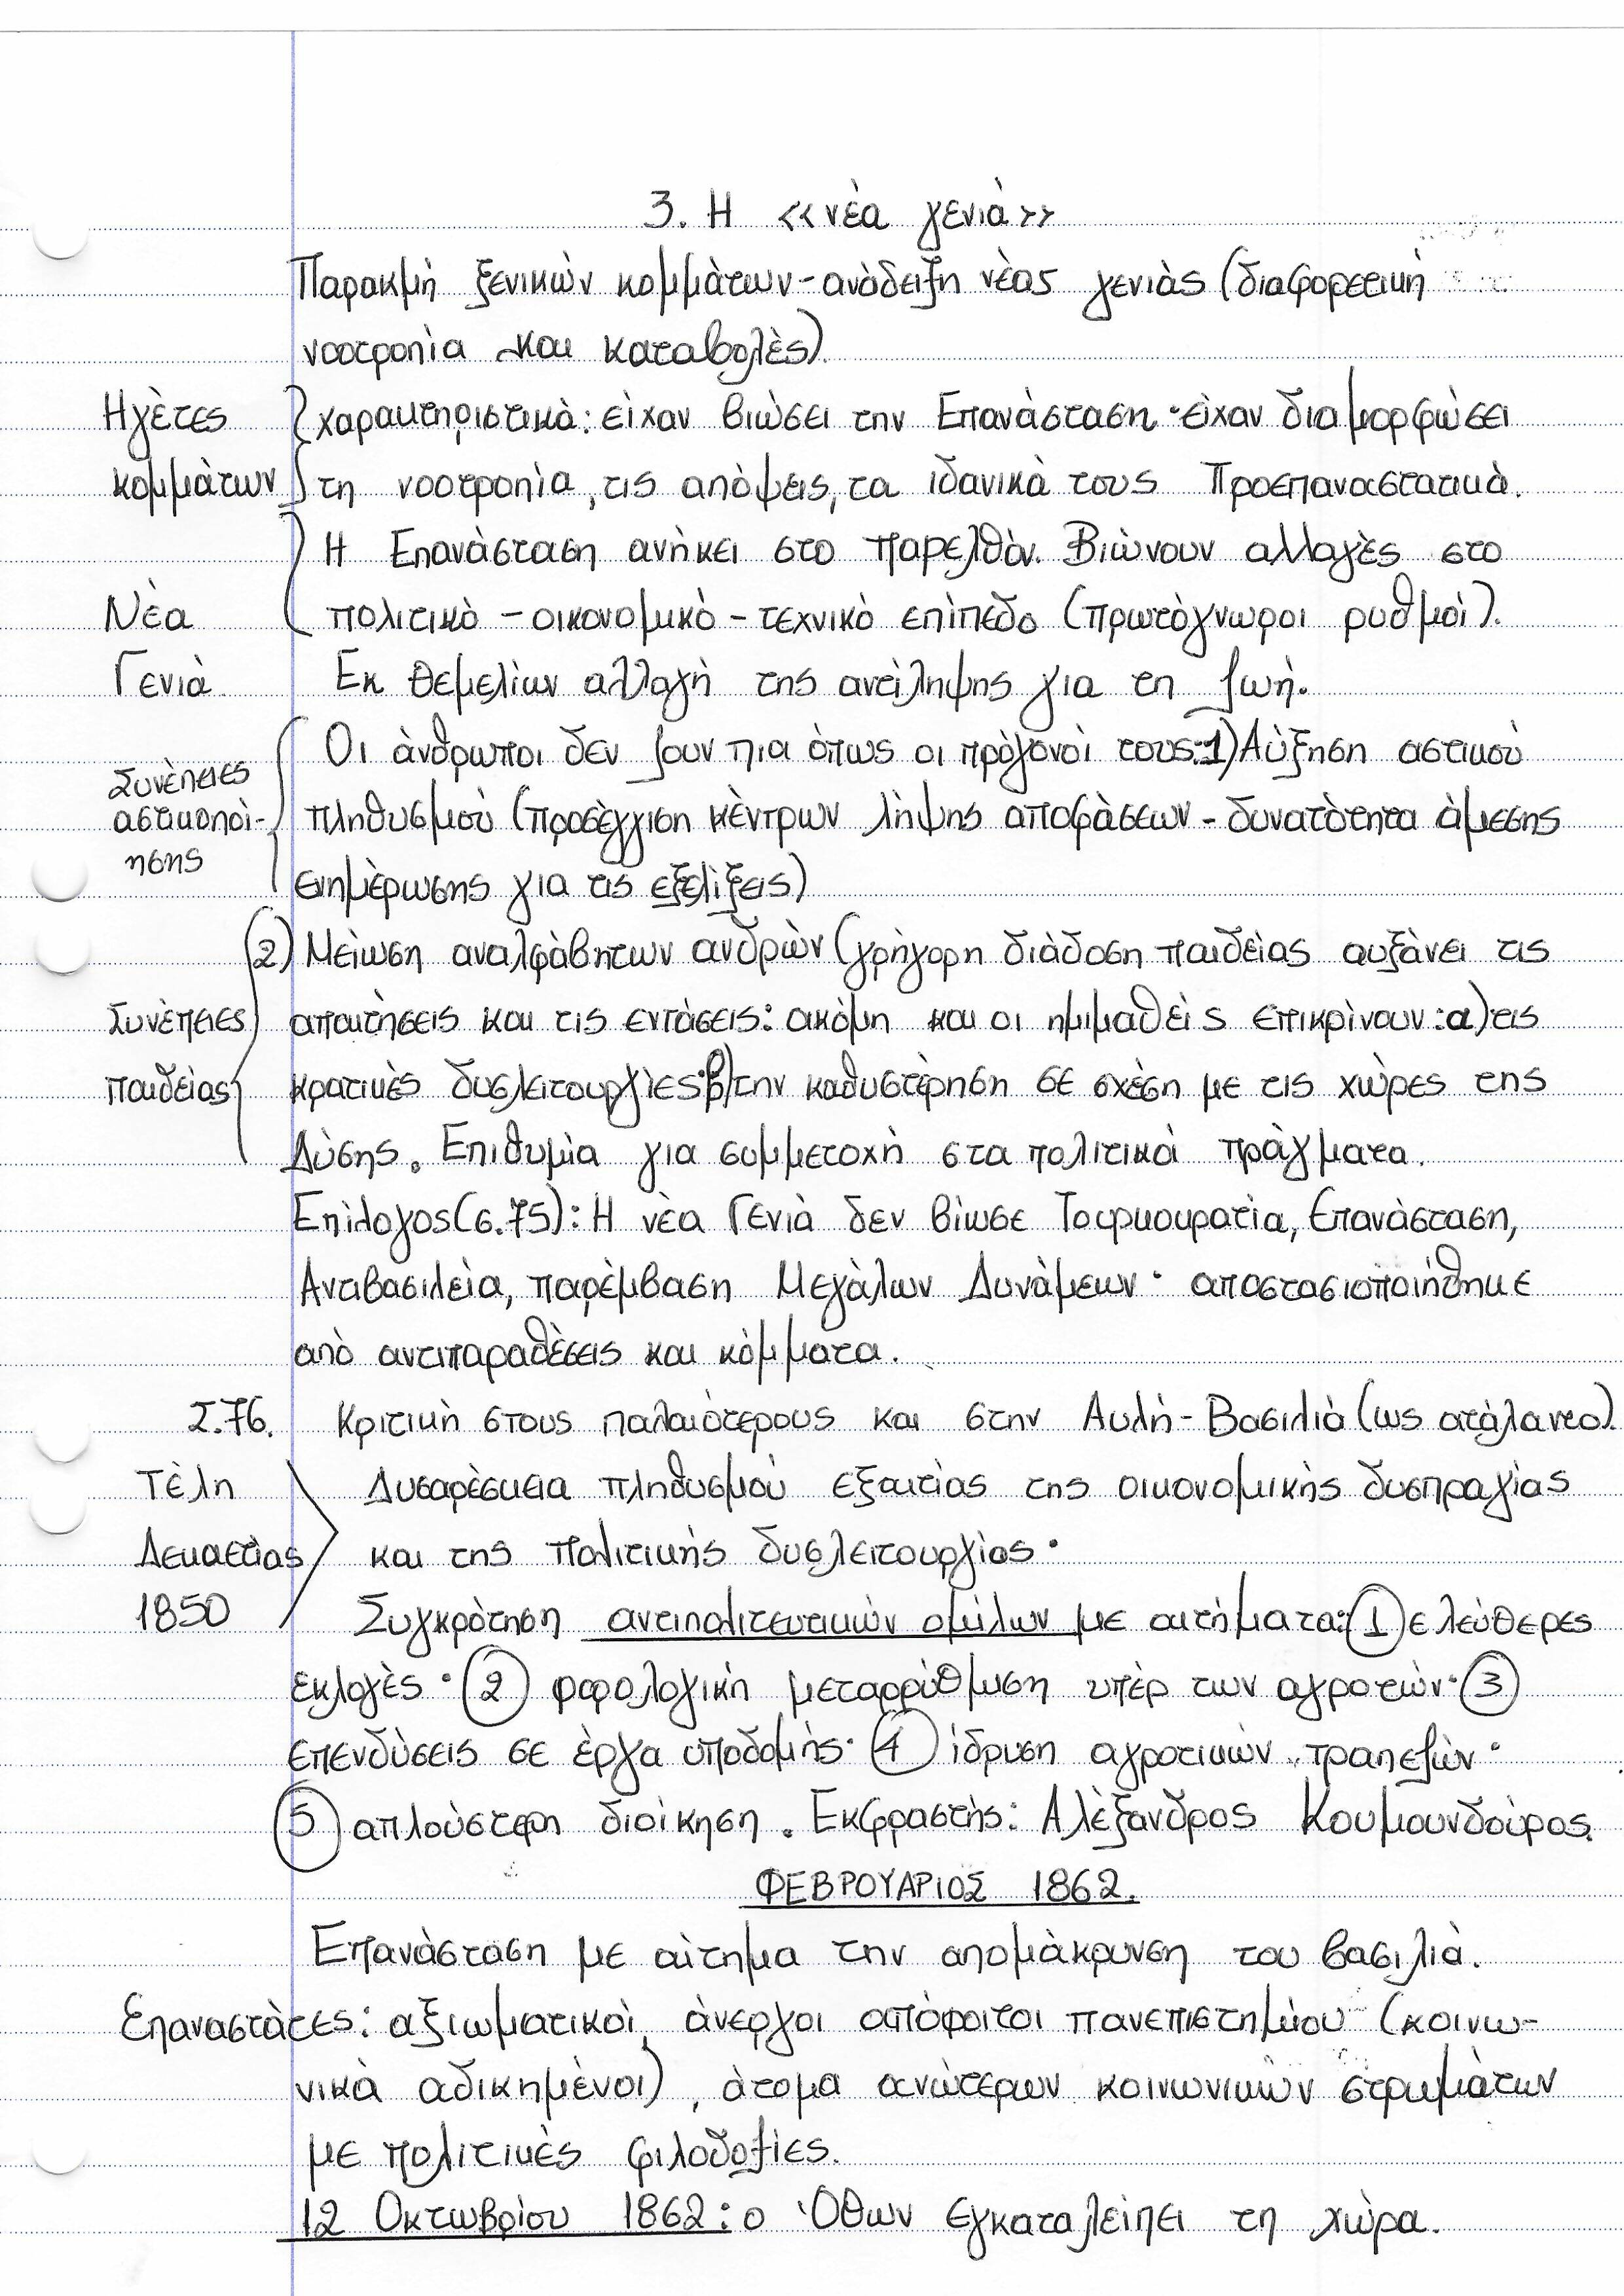 3. Η «νέα γενιά»
Παρακμή ξενικών κομμάτων - ανάδειξη νέας γενιάς (διαφορετική
νοοτροπία και καταβολές).
Ηγέτες χαρακτηριστικά: είχαν βιώσει την Επανάσταση· είχαν διαμορφώσει
κομμάτων τη νοοτροπία, τις απόψεις, τα ιδανικά τους Προεπαναστατικά.
Η Επανάσταση ανήκει στο παρελθόν. Βιώνουν αλλαγές στο
Νέα πολιτικό - οικονομικό - τεχνικό επίπεδο (πρωτόγνωροι ρυθμοί).
Γενιά Εκ θεμελίων αλλαγή της αντίληψης για τη ζωή.
Οι άνθρωποι δεν ζουν πια όπως οι πρόγονοί τους: 1) Αύξηση αστικού
Συνέπειες αστικοποί- πληθυσμού (προσέγγιση κέντρων λήψης αποφάσεων - δυνατότητα άμεσης
ησης ενημέρωσης για τις εξελίξεις)
2) Μείωση αναλφάβητων ανδρών (γρήγορη διάδοση παιδείας αυξάνει τις
Συνέπειες απαιτήσεις και τις εντάσεις: ακόμη και οι ημιμαθείς επικρίνουν: α) τις
παιδείας κρατικές δυσλειτουργίες· β) την καθυστέρηση σε σχέση με τις χώρες της
Δύσης. Επιθυμία για συμμετοχή στα πολιτικά πράγματα.
Επίλογος (σ.75): Η νέα Γενιά δεν βίωσε Τουρκοκρατία, Επανάσταση,
Αντιβασιλεία, παρέμβαση Μεγάλων Δυνάμεων· αποστασιοποιήθηκε
από αντιπαραθέσεις και κόμματα.
Σ.76. Κριτική στους παλαιότερους και στην Αυλή - Βασιλιά (ως ατάλαντο).
Τέλη Δυσαρέσκεια πληθυσμού εξαιτίας της οικονομικής δυσπραγίας
Δεκαετίας και της πολιτικής δυσλειτουργίας·
1850 Συγκρότηση αντιπολιτευτικών ομίλων με αιτήματα: 1 ελεύθερες
εκλογές· 2 φορολογική μεταρρύθμιση υπέρ των αγροτών· 3
επενδύσεις σε έργα υποδομής· 4 ίδρυση αγροτικών τραπεζών·
5 απλούστερη διοίκηση. Εκφραστής: Αλέξανδρος Κουμουνδούρος.
ΦΕΒΡΟΥΑΡΙΟΣ 1862.
Επανάσταση με αίτημα την απομάκρυνση του βασιλιά.
Επαναστάτες: αξιωματικοί, άνεργοι απόφοιτοι πανεπιστημίου (κοινω-
νικά αδικημένοι), άτομα ανώτερων κοινωνικών στρωμάτων
με πολιτικές φιλοδοξίες.
12 Οκτωβρίου 1862: ο Όθων εγκαταλείπει τη χώρα.